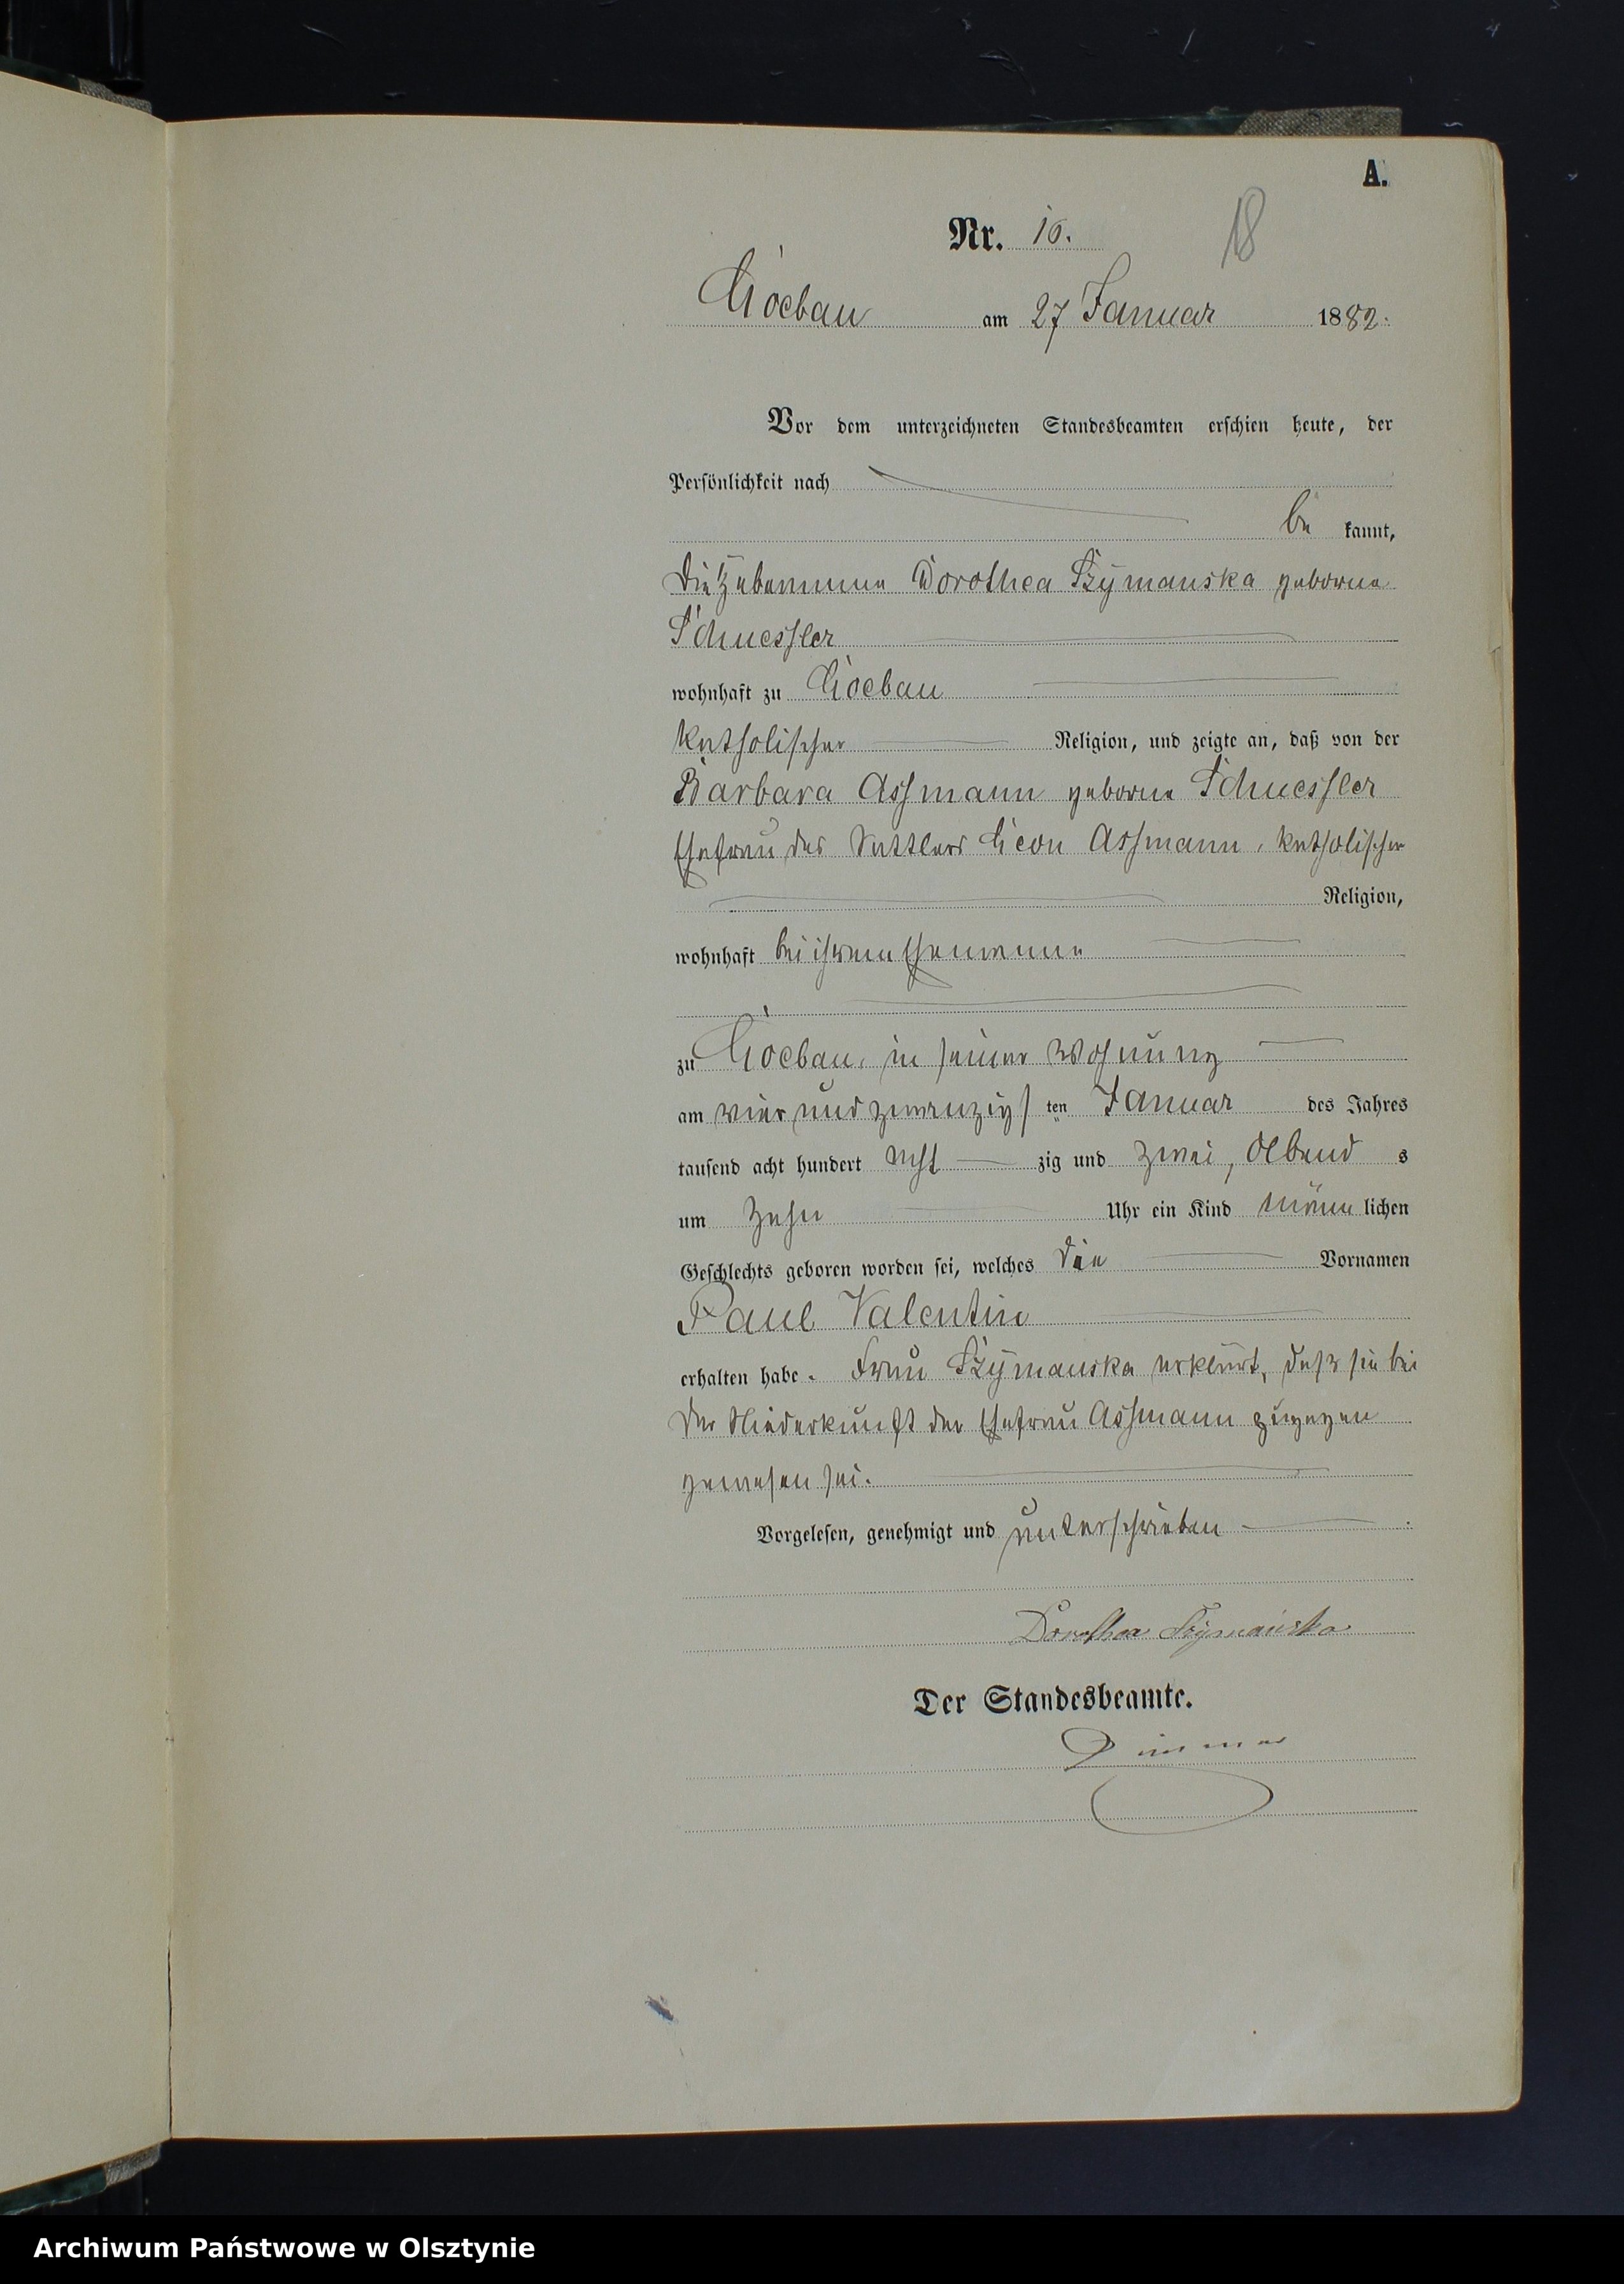 A.
Nr. 16.
18
Loebau am 27 Januar 1882.
Vor dem unterzeichneten Standesbeamten erschien heute, der
Persönlichkeit nach
be kannt,
die Hebamme Dorothea Szymanska geborne
Schuessler
wohnhaft zu Loebau
katholischer Religion, und zeigte an, daß von der
Barbara Assmann geborne Schuessler
Ehefrau des Sattlers Leon Assmann, katholischer
Religion,
wohnhaft bei ihrem Ehemanne
zu Loebau, in seiner Wohnung
am vier und zwanzigsten Januar des Jahres
tausend acht hundert acht zig und zwei, Abend s
um zehn Uhr ein Kind männ lichen
Geschlechts geboren worden sei, welches die Vornamen
Paul Valentin
erhalten habe. Frau Szymanska erklärt, daß sie bei
der Niederkunft der Ehefrau Assmann zugegen
gewesen sei.
Vorgelesen, genehmigt und unterschrieben
Dorothea Szymańska
Der Standesbeamte.
Archiwum Państwowe w Olsztynie